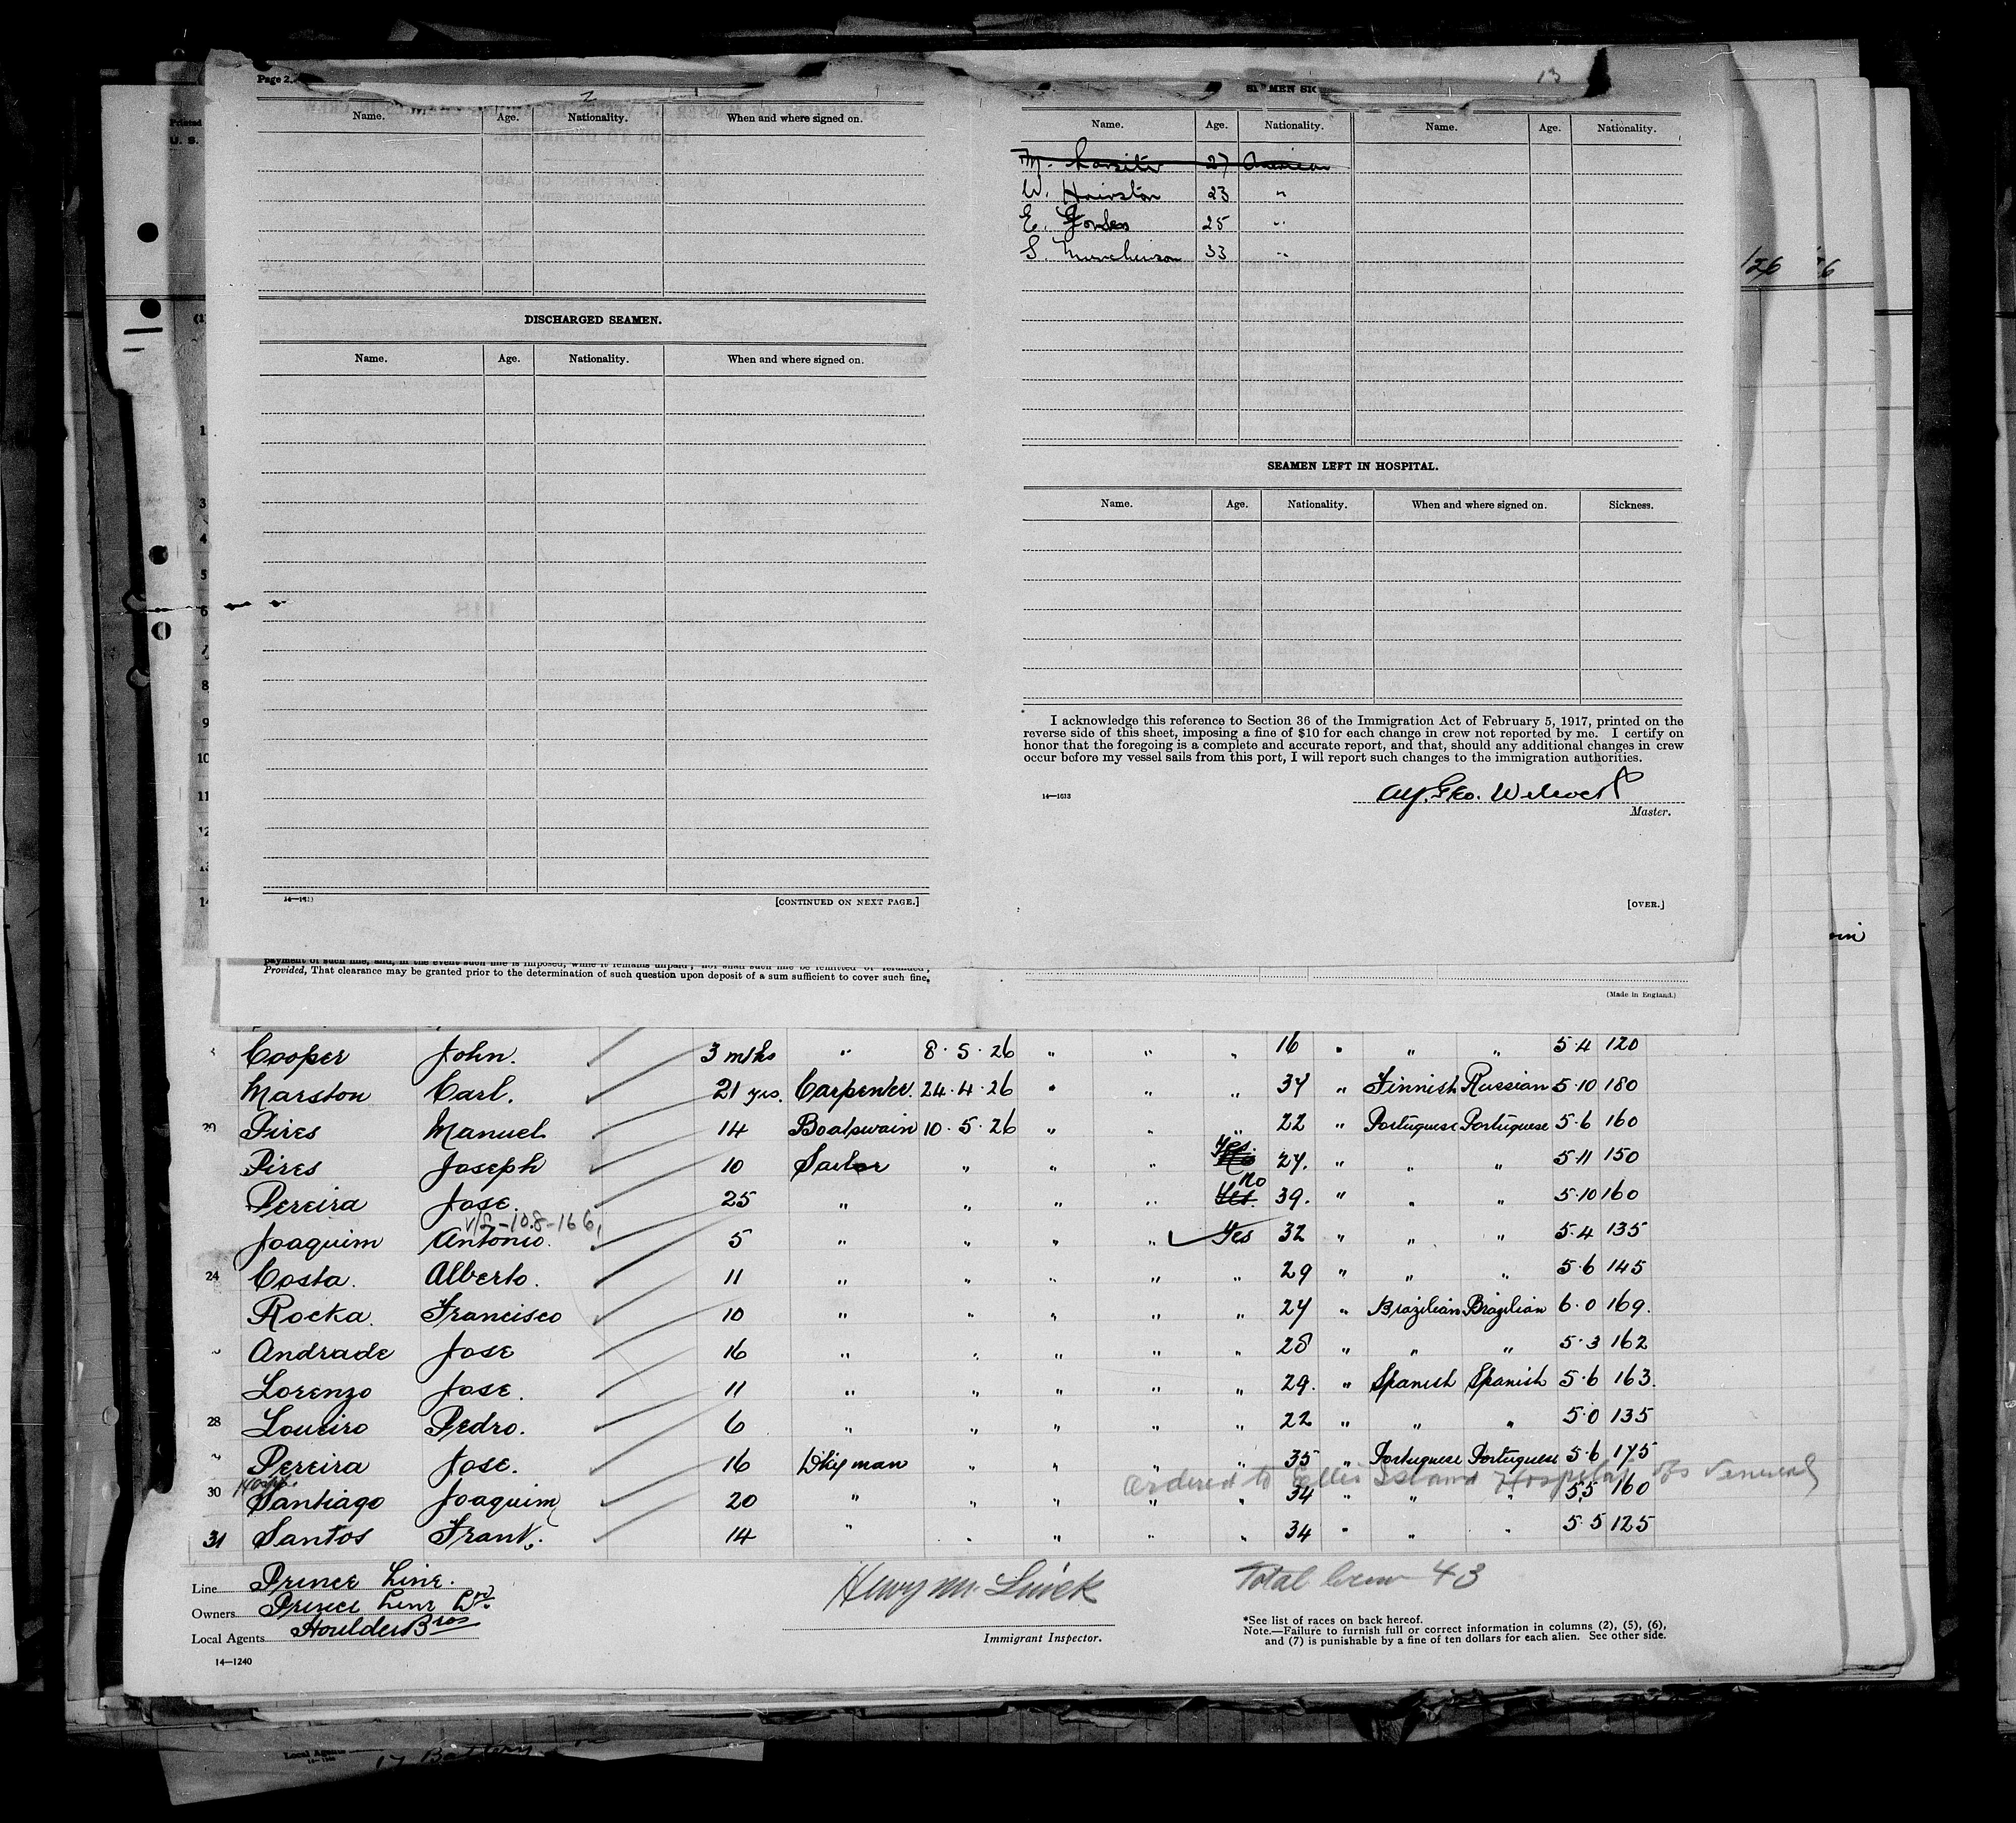 Page 2.
2
Name. Age. Nationality. When and where signed on.
DISCHARGED SEAMEN.
Name. Age. Nationality. When and where signed on.
14—1613
[CONTINUED ON NEXT PAGE.]
13
Name. Age. Nationality. Name. Age. Nationality.
M. 27 American
W. Hairston 23 "
E. 25 "
S. Murchison 33 "
SEAMEN LEFT IN HOSPITAL.
Name. Age. Nationality. When and where signed on. Sickness.
I acknowledge this reference to Section 36 of the Immigration Act of February 5, 1917, printed on the
reverse side of this sheet, imposing a fine of $10 for each change in crew not reported by me. I certify on
honor that the foregoing is a complete and accurate report, and that, should any additional changes in crew
occur before my vessel sails from this port, I will report such changes to the immigration authorities.
14—1613
Geo.
Master.
[OVER.]
payment of such fine, and, in the event such fine is imposed, while it remains unpaid; nor shall such fine be remitted or refunded;
Provided, That clearance may be granted prior to the determination of such question upon deposit of a sum sufficient to cover such fine,
(Made in England.)
Cooper John. 3 mths " 8.5.26 " " " 16 " " " 5.4 120
Marston Carl. 21 yrs. Carpenter. 24.4.26 " " " 37 " Finnish Russian 5.10 180
Pires Manuel 14 Boatswain 10.5.26 " " " 22 " Portuguese Portuguese 5.6 160
Pires Joseph 10 Sailor " " " Yes No 27. " " " 5.11 150
Pereira Jose. 25 " " " " No Yes. 39. " " " 5.10 160
V/2-108-166,
Joaquim Antonio. 5 " " " " Yes 32 " " " 5.4 135
24 Costa. Alberto. 11 " " " " " 29 " " " 5.6 145
Rocka. Francisco 10 " " " " " 27 " Brazilian Brazilian 6.0 169.
Andrade Jose 16 " " " " " 28 " " " 5.3 162
Lorenzo Jose. 11 " " " " " 29. " Spanish Spanish 5.6 163.
28 Loueiro Pedro. 6 " " " " " 22 " " " 5.0 135
Pereira Jose. 16 Dkyman " " " " 35 " Portuguese Portuguese 5.6 175
Ordered to Ellis Island Hospital Venereal
30 Santiago Joaquim 20 " " " " 34 " " " 5.5 160
31 Santos Frank. 14 " " " " " 34 " " " 5.5 125
Line Prince Line.
Owners Prince Line Ltd.
Local Agents Houlder Bros
14—1240
Henry M.
Immigrant Inspector.
Total Crew 43
*See list of races on back hereof.
Note.—Failure to furnish full or correct information in columns (2), (5), (6),
and (7) is punishable by a fine of ten dollars for each alien. See other side.